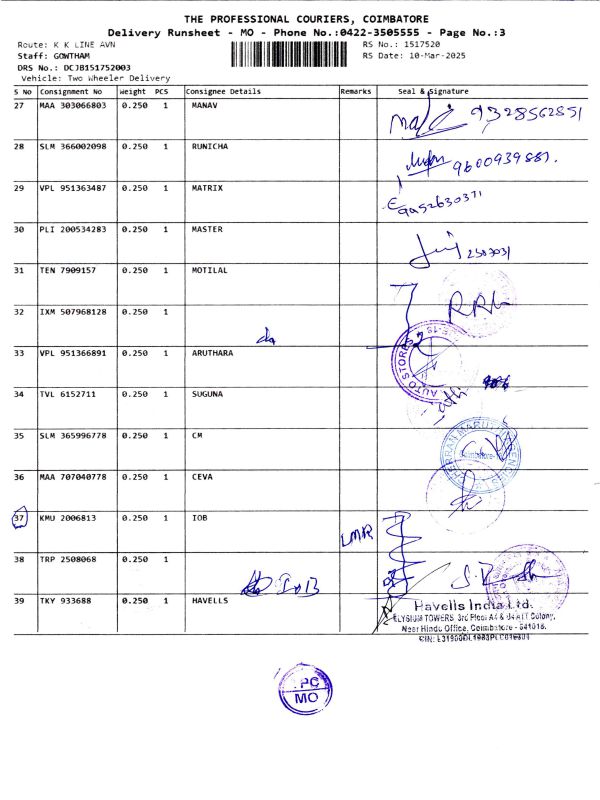 THE PROFESSIONAL COURIERS, COIMBATORE
Delivery Runsheet - MO - Phone No.:0422-3505555 - Page No.:3
Route: K K LINE AVN
RS No.: 1517520
Staff: GOWTHAM
RS Date: 10-Mar-2025
DRS No.: DCJB151752003
Vehicle: Two Wheeler Delivery
S No Consignment No Weight PCS Consignee Details Remarks Seal & Signature
27 MAA 303066803 0.250 1 MANAV
9328562851
28 SLM 366002098 0.250 1 RUNICHA
9600939881.
29 VPL 951363487 0.250 1 MATRIX
9952630371
30 PLI 200534283 0.250 1 MASTER
31 TEN 7909157 0.250 1 MOTILAL
32 IXM 507968128 0.250 1
33 VPL 951366891 0.250 1 ARUTHARA
AUTO STORES
34 TVL 6152711 0.250 1 SUGUNA
35 SLM 365996778 0.250 1 CM
36 MAA 707040778 0.250 1 CEVA
37 KMU 2006813 0.250 1 IOB
LMR
38 TRP 2508068 0.250 1
IOB
39 TKY 933688 0.250 1 HAVELLS
Havells India Ltd.
ELYSIUM TOWERS, 3rd Floor A4 & B4 ATT Colony,
Near Hindu Office, Coimbatore - 641018.
PC
MO